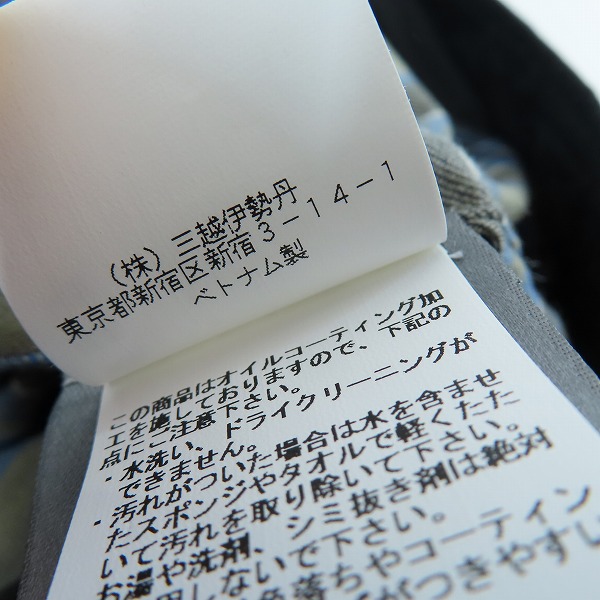 （株）三越伊勢丹
東京都新宿区新宿３－１４－１
ベトナム製
この商品はオイルコーティング加
工を施しておりますので、下記の
点にご注意下さい。
・水洗い、ドライクリーニングが
できません。
・汚れがついた場合は水を含ませ
たスポンジやタオルで軽くたた
いて汚れを取り除いて下さい。
お湯や洗剤、シミ抜き剤は絶対
用しないで下さい。
色落ちやコーティン
がつきやすい